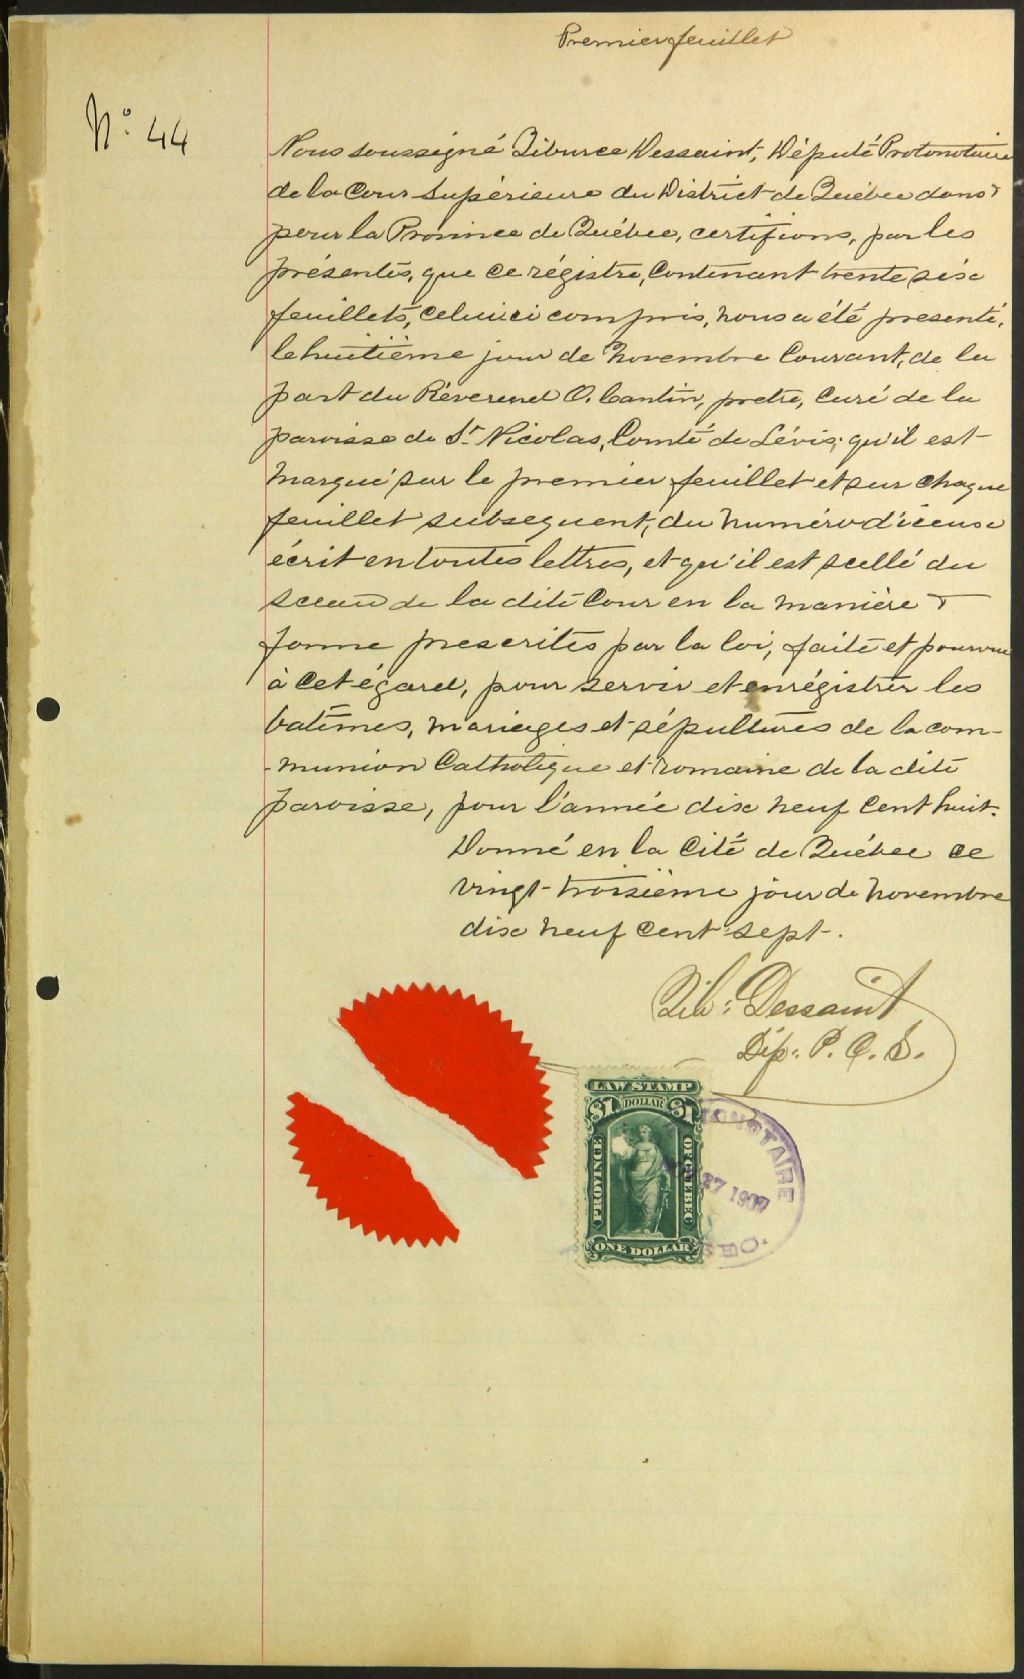 Premier feuillet
N° 44
Nous soussigné Tiburce Dessaint, Député Protonotaire
de la Cour Supérieure du District de Québec dans &
pour la Province de Québec, certifions, par les
présentes, que ce régistre, contenant trente six
feuillets, celui ci compris, nous a été presenté,
le huitième jour de Novembre Courant, de la
part du Réverend O. Cantin, pretre, Curé de la
paroisse de St Nicolas, Comté de Lévis; qu'il est
Marqué sur le premier feuillet et sur chaque
feuillet subsequent, du numéro d'icenx
écrit en toutes lettres, et qu'il est scellé du
sceau de la dite Cour en la manière &
forme prescrites par la loi, faite et pourvue
à cet égard, pour servir et enrégistrer les
batêmes, mariages et sépultures de la com-
-munion Catholique et romaine de la dite
paroisse, pour l'année dix neuf Cent huit.
Donné en la Cité de Québec ce
vingt-troisième jour de Novembre
dix neuf Cent sept.
Tib: Dessaint
Dép: P. C. S.
LAW STAMP
$1 DOLLAR $1
PROVINCE OF QUEBEC
ONE DOLLAR
27 1907